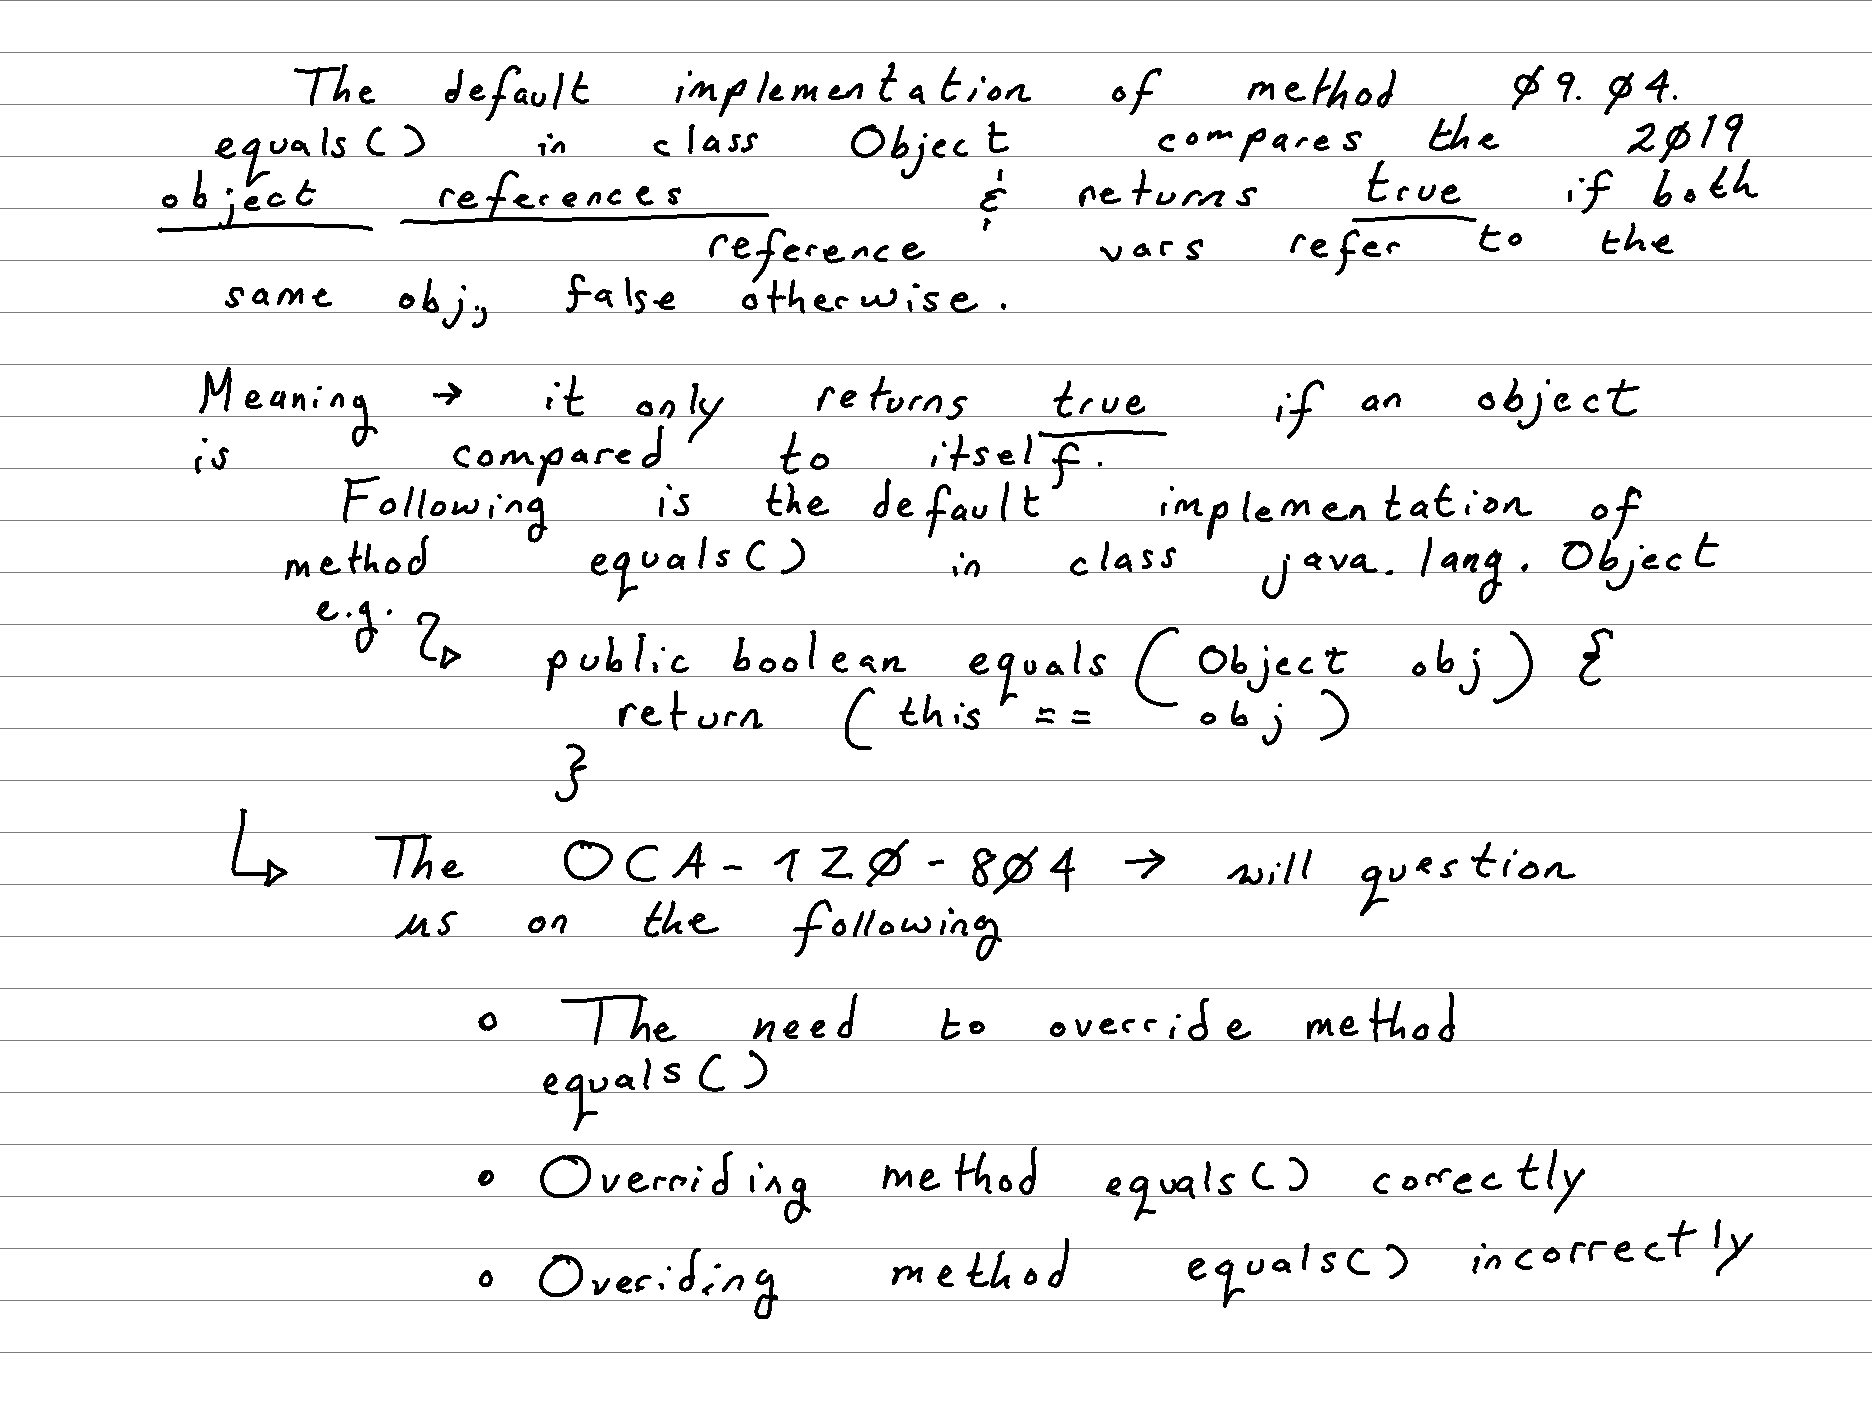 The default implementation of method Ø9.Ø4.
equals() in class Object compares the 2Ø19
object references & returns true if both
reference vars refer to the
same obj, false otherwise.
Meaning → it only returns true if an object
is compared to itself.
Following is the default implementation of
method equals() in class java.lang.Object
e.g.
public boolean equals (Object obj) {
return (this == obj)
}
The OCA-1ZØ-8Ø4 → will question
us on the following
• The need to override method
equals()
• Overriding method equals() correctly
• Overiding method equals() incorrectly